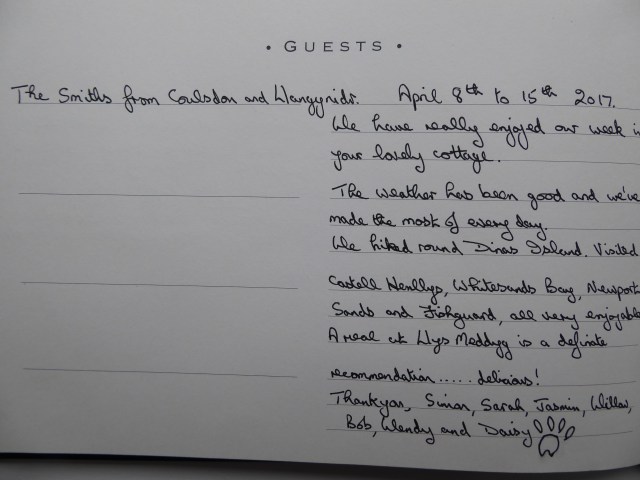 • GUESTS •
The Smiths from Coulsdon and Llangynidr. April 8th to 15th 2017.
We have really enjoyed our week in
your lovely cottage.
The weather has been good and we've
made the most of every day.
We hiked round Dinas Island. Visited
Castell Henllys, Whitesands Bay, Newport
Sands and Fishguard, all very enjoyable
A meal at Llys Meddyg is a definate
recommendation ..... delicious!
Thankyou, Simon, Sarah, Jasmin, Willow,
Bob, Wendy and Daisy